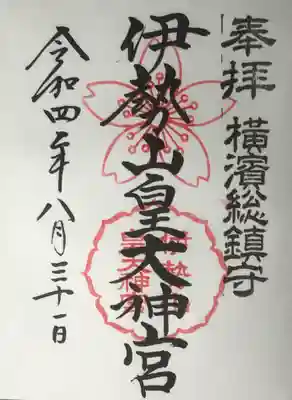 奉拝 横濱総鎮守
伊勢山皇大神宮
令和四年八月三十一日